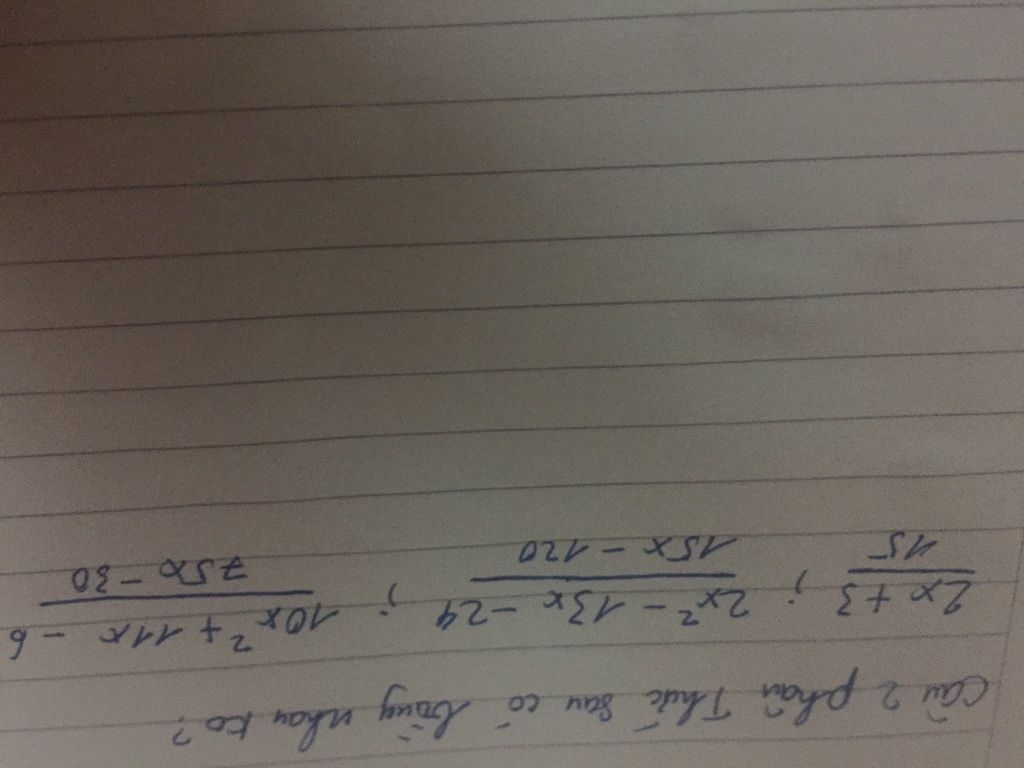 Câu 2 phân Thức sau có bằng nhau ko?
2x + 3 / 15 ; 2x² - 13x - 24 / 15x - 120 ; 10x² + 11x - 6 / 75x - 30